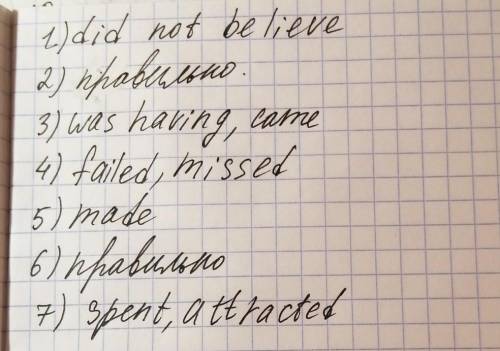 1) did not believe
2) правильно.
3) was having, came
4) failed, missed
5) made
6) правильно
7) spent, attracted